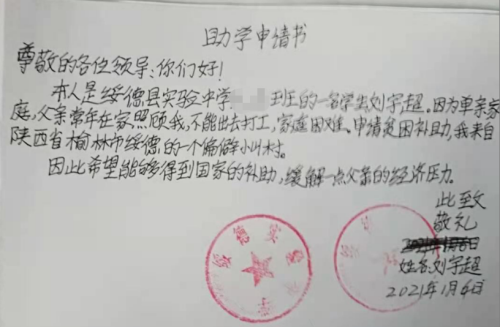 助学申请书
尊敬的各位领导:你们好!
本人是绥德县实验中学 班的一名学生刘宇超。因为单亲家
庭,父亲常年在家照顾我,不能出去打工,家庭困难、申请贫困补助,我来自
陕西省榆林市绥德的一个偏僻小山村。
因此希望能够得到国家的补助,缓解一点父亲的经济压力。
此至文
敬礼
姓名刘宇超
2021年1月6日